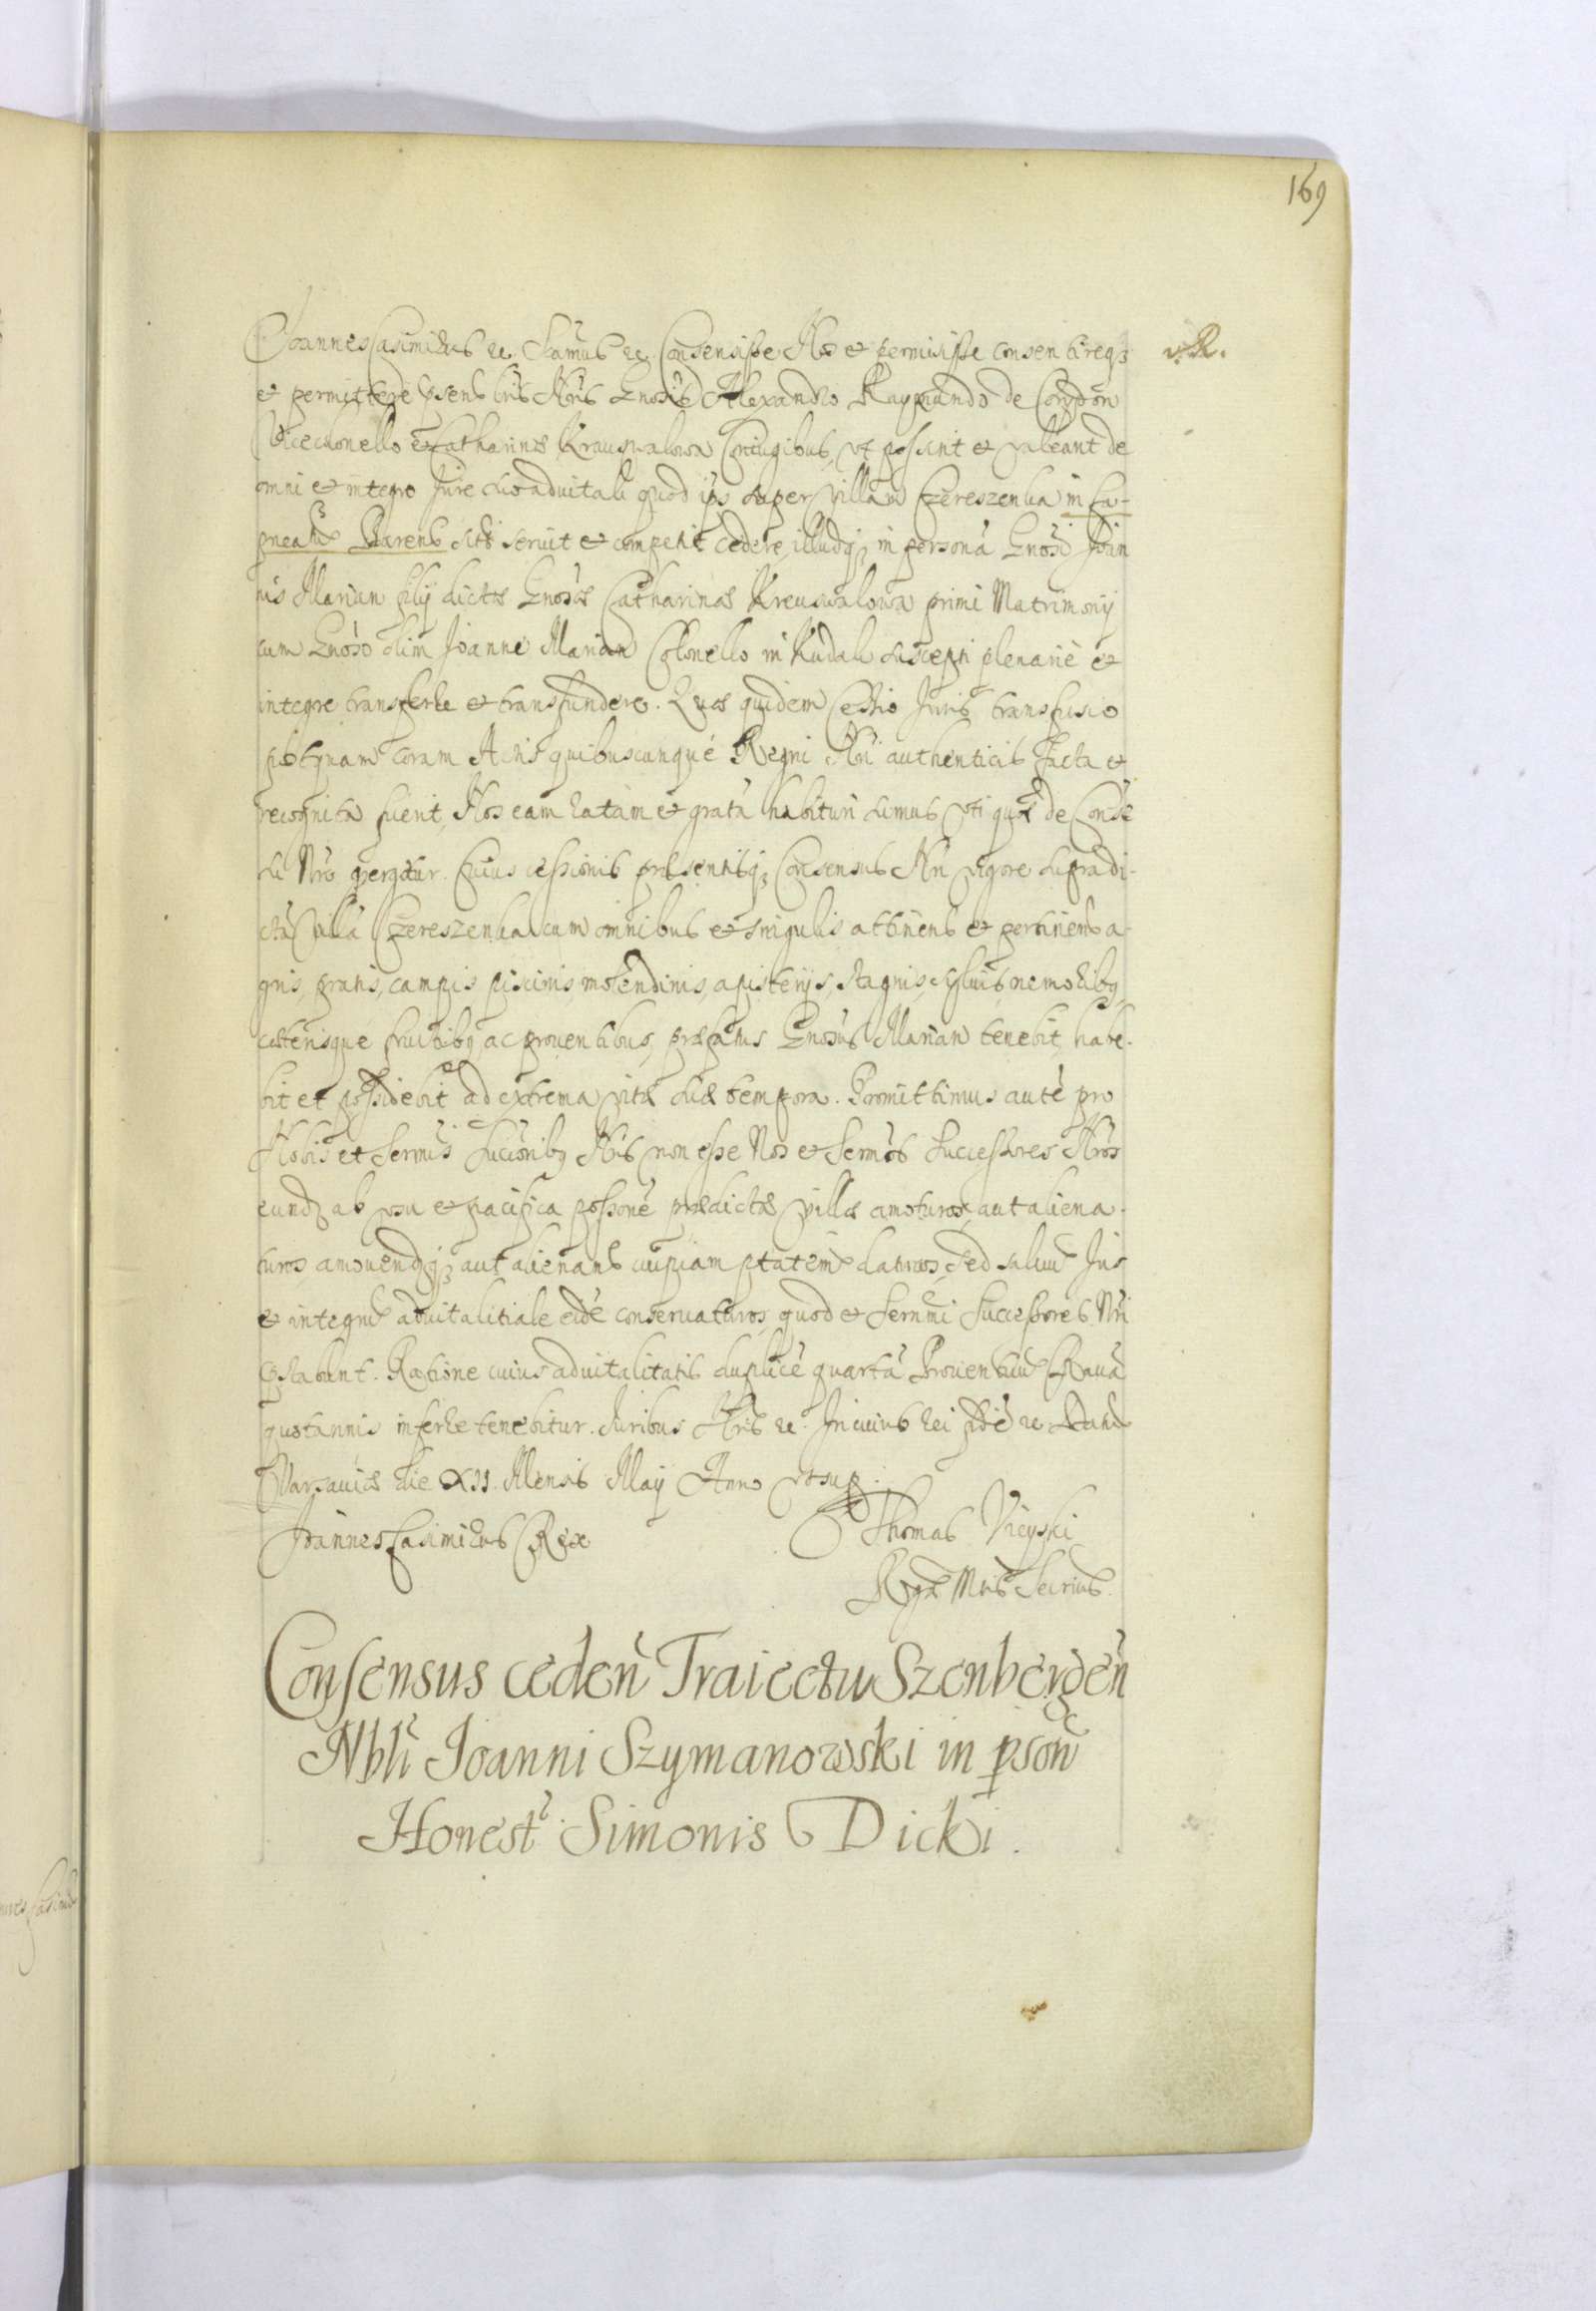 169
Joannes Casimirus etc. Sigmus etc. Consensisse Nos et permisisse consentireq3 v. R.
et permittere psentibus lris Nris Gnosis Alexandro Raymundo de Corydon
Vicecolonello et Catharinæ Krauswalowa Coniugibus, vt possint et valeant de
omni et integro Jure suo aduitali quod ips super Villam Czereszenka in Ca-
pneatu Barens sita seruit et competit cedere, illudq3 in personã Gnosi Joan
nis Marian filij dictæ Gnosæ Catharinæ Kreuswalowa primi Matrimonij
cum Gnoso olim Joanne Marian Colonello in Kudak suscepti plenariè et
integre transferre et transfundere. Quæ quidem Cessio Juris transfusio
postquam coram Actis quibuscunque Regni Nri authenticis facta et
recognita fuerit, Nos eam ratam et gratã habituri sumus, vti quæ de Consẽ
su Nro pergatur. Cuius cessionis præsentisq3 Consensus Nri vigore supradi-
ctã Villã Czereszenka cum omnibus et singulis attinens et pertinens a-
gris, pratis, campis piscinis, molendinis, apisterijs, stagnis, syluis nemoribq
cæterisque fructibq ac prouentibus, præfatus Gnosus Marian tenebit, habe-
bit et possidebit ad extrema vitæ suæ tempora. Promittimus autẽ pro
Nobis et Sermis Succoribq Nris non esse Nos et Sermos Successores Nros
eundẽ ab vsu et pacifica possone prædictæ Villæ amoturos, aut aliena-
turos amouendiq3 aut alienandi cuipiam ptatem daturos, sed saluũ Jus
et integrũ aduitalitiale eidẽ conseruaturos, quod et Sermi Successores Nri
pstabunt. Ratione cuius aduitalitatis duplicẽ quartã Prouentuũ Rauã
quotannis inferre tenebitur. Juribus Nris etc. In cuius rei fidẽ etc. Datũ
Varsauiæ die XII. Mensis Maij Anno vt sup.
Joannes Casimirus Rex Thomas Vieyski
Regæ Mtis Secrius.
Consensus cedeñ Traiectu Szenbergeñ
Nbli Joanni Szymanowski in psonã
Honesti Simonis Dicki.